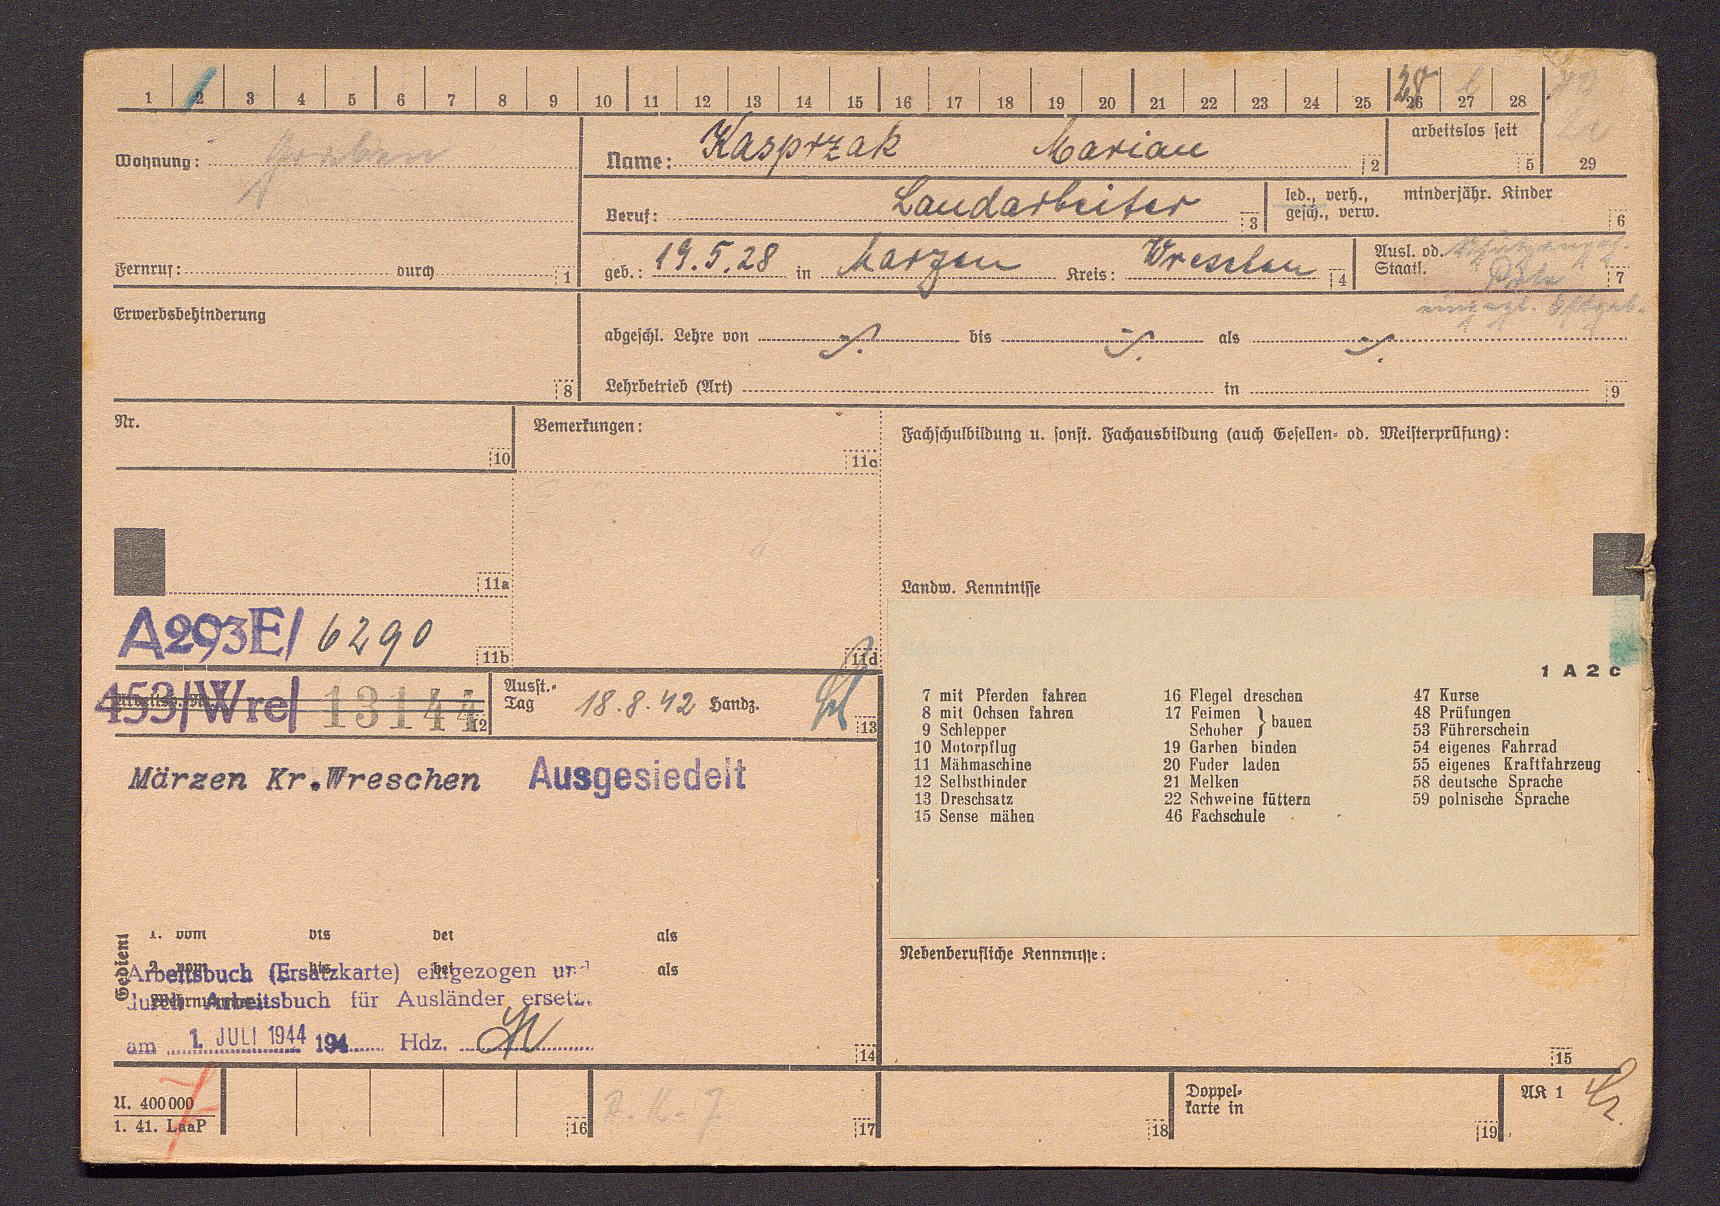 1 2 3 4 5 6 7 8 9 10 11 12 13 14 15 16 17 18 19 20 21 22 23 24 25 26 27 28
28
Wohnung:
Name: Kasprzak Marian 2
arbeitslos seit 5
29
Beruf: Landarbeiter 3
led., verh., gesch., verw.
minderjähr. Kinder 6
Fernruf: durch 1
geb.: 19.5.28 in Marzen Kreis: Wreschen 4
Ausl. od. Staatl. Pole 7
Erwerbsbehinderung 8
abgeschl. Lehre von bis als
Lehrbetrieb (Art) in 9
Nr. 10
Bemerkungen: 11c
Fachschulbildung u. sonst. Fachausbildung (auch Gesellen- od. Meisterprüfung):
11a
Landw. Kenntnisse
A293E/ 6290 11b
11d
453/Wre/ 13144 12
Ausst.-Tag 18.8.42 Handz. 13
1 A 2 c
7 mit Pferden fahren
8 mit Ochsen fahren
9 Schlepper
10 Motorpflug
11 Mähmaschine
12 Selbstbinder
13 Dreschsatz
15 Sense mähen
16 Flegel dreschen
17 Feimen
Schober } bauen
19 Garben binden
20 Fuder laden
21 Melken
22 Schweine füttern
46 Fachschule
47 Kurse
48 Prüfungen
53 Führerschein
54 eigenes Fahrrad
55 eigenes Kraftfahrzeug
58 deutsche Sprache
59 polnische Sprache
Märzen Kr.Wreschen Ausgesiedelt
Gedient
1. vom bis bei als
2. vom bis bei als
Arbeitsbuch (Ersatzkarte) eingezogen und
durch Arbeitsbuch für Ausländer ersetzt
am 1. JULI 1944 194 Hdz.
14
Nebenberufliche Kenntnisse:
15
U. 400000
1. 41. LaaP
16
17
18
Doppel-
karte in
19
AK 1